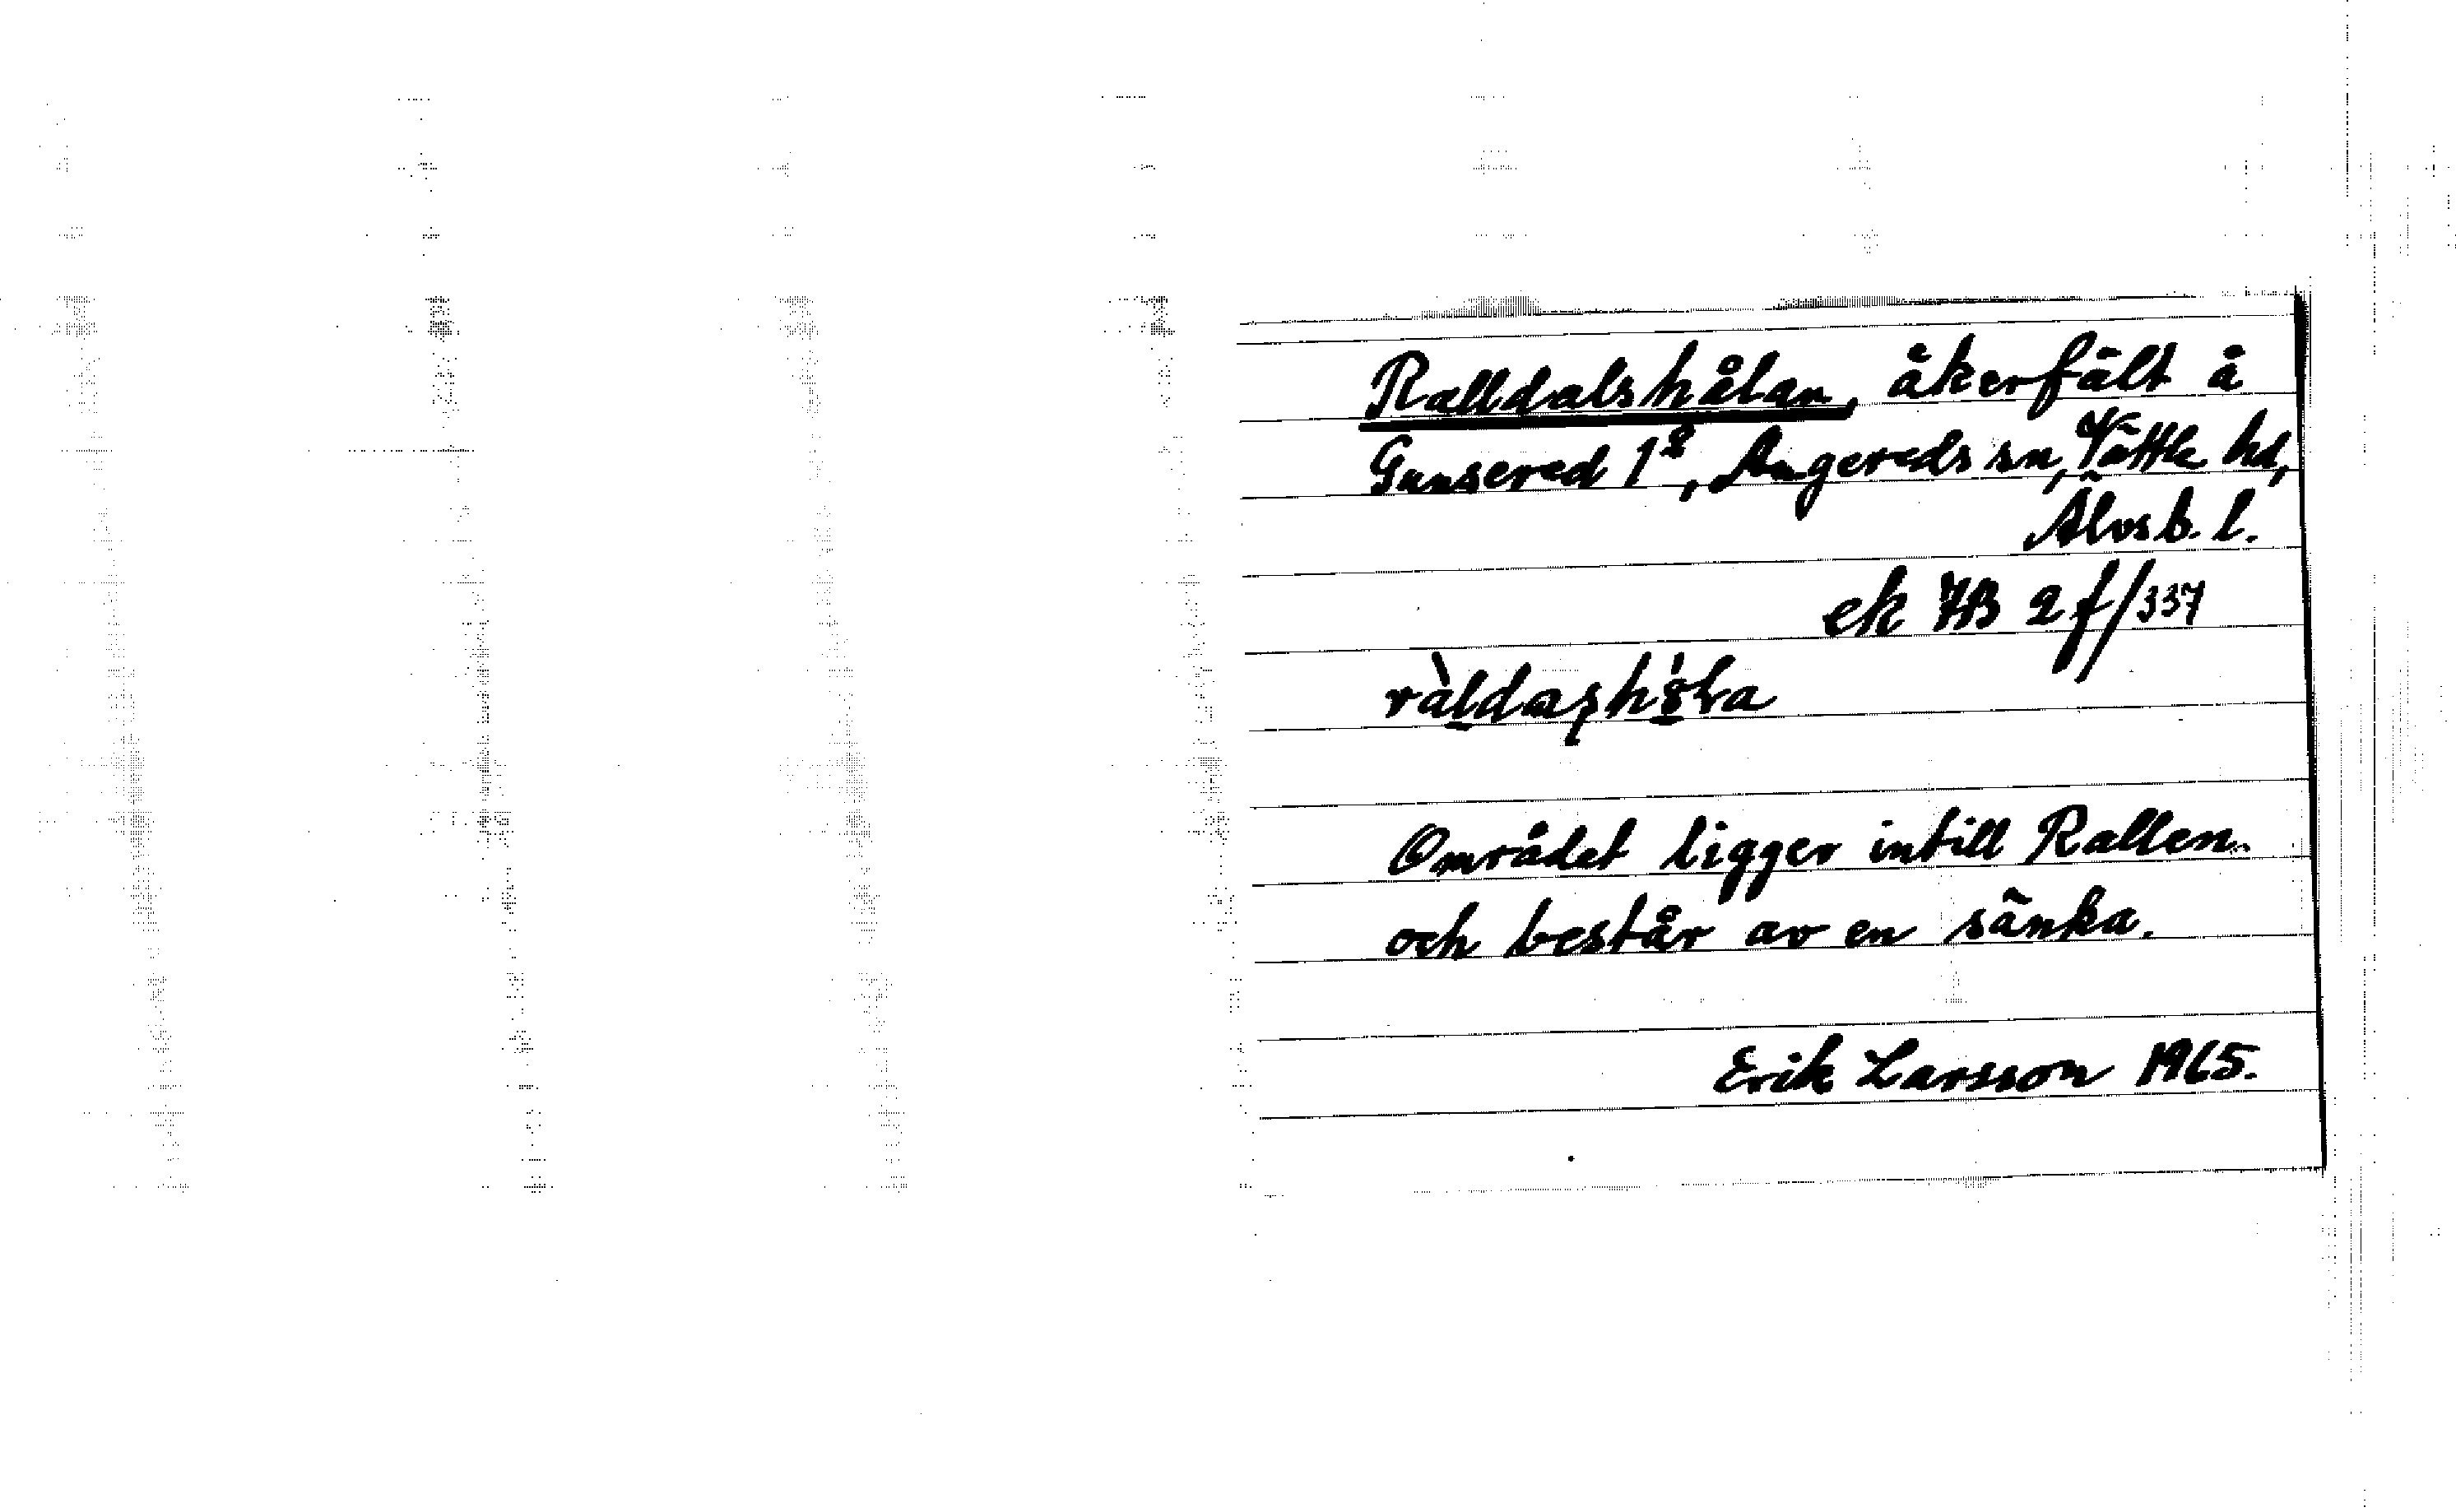 Ralldalshålan, åkerfält å
Gunsered 1⁸, Angereds sn, Vättle hd,
Älvsb. l.
ek 7B 2f/337
Området ligger intill Rallen
och består av en sänka.
Erik Larsson 1965.